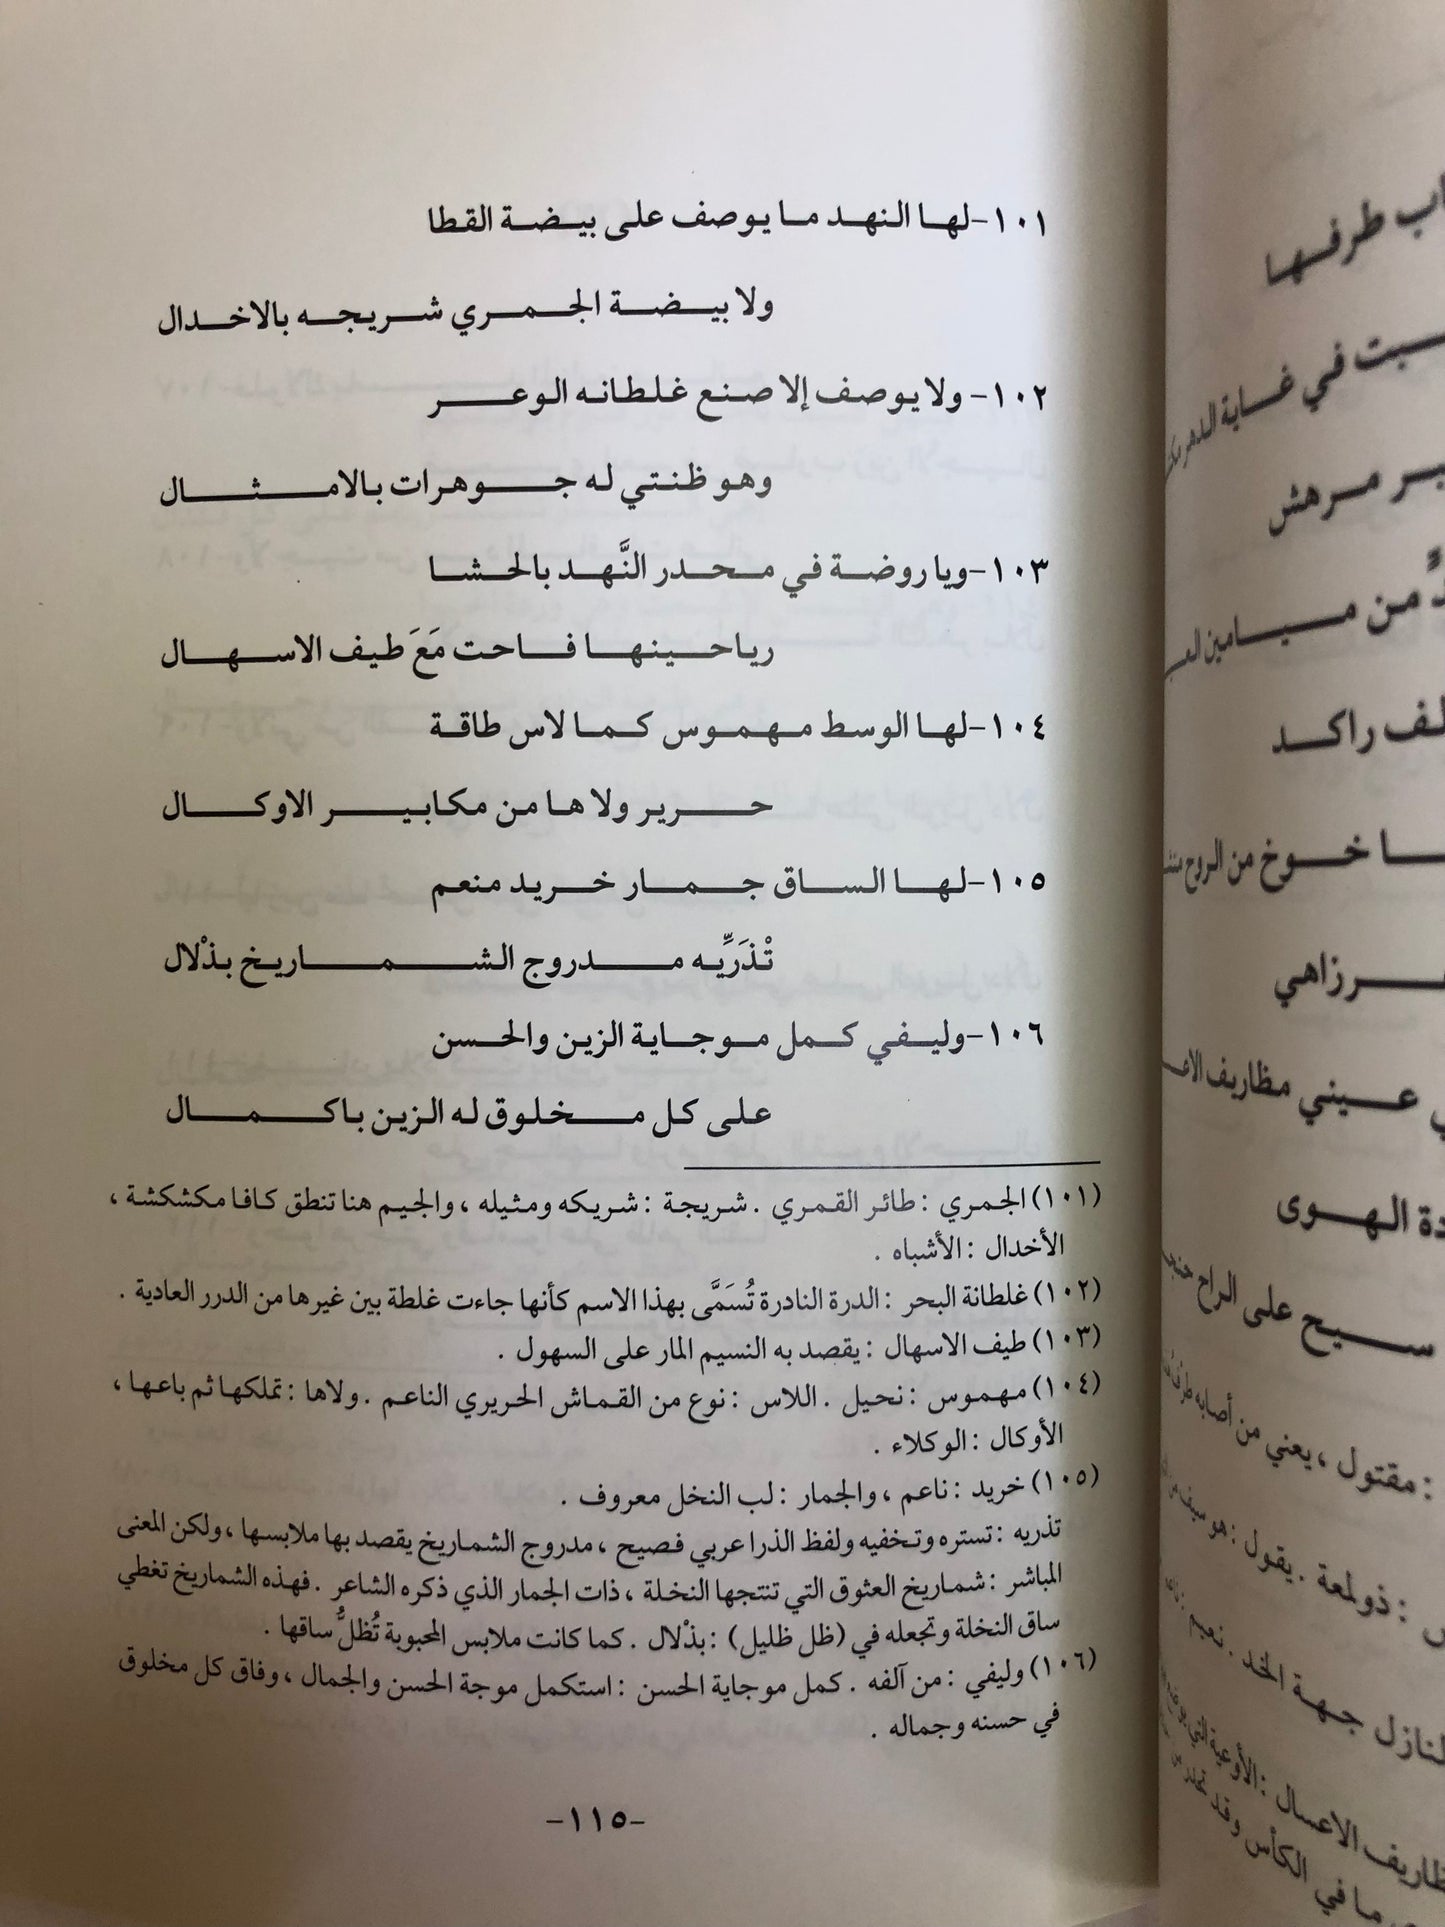 ١٠١-لها النهد ما يوصف على بيضة القطا
ولا بيضة الجمري شريجه بالاخدال
١٠٢- ولا يوصف إلا صنع غلطانه الوعر
وهو ظنتي له جوهرات بالامثال
١٠٣-ويا روضة في محدر النَّهد بالحشا
رياحينها فاحت مَعَ طيف الاسهال
١٠٤-لها الوسط مهموس كما لاس طاقة
حرير ولاها من مكابير الاوكال
١٠٥-لها الساق جمار خريد منعم
تْذَرِّيه مدروج الشماريخ بذْلال
١٠٦-وليفي كمل موجاية الزين والحسن
على كل مخلوق له الزين باكمال
(١٠١) الجمري : طائر القمري . شريجة : شريكه ومثيله ، والجيم هنا تنطق كافا مكشكشة ،
الأخدال : الأشباه .
(١٠٢) غلطانة البحر : الدرة النادرة تُسَمَّى بهذا الاسم كأنها جاءت غلطة بين غيرها من الدرر العادية .
(١٠٣) طيف الاسهال : يقصد به النسيم المار على السهول .
(١٠٤) مهموس : نحيل . اللاس : نوع من القماش الحريري الناعم . ولاها : تملكها ثم باعها ،
الأوكال : الوكلاء .
(١٠٥) خريد : ناعم ، والجمار : لب النخل معروف .
تذريه : تستره وتخفيه ولفظ الذرا عربي فصيح ، مدروج الشماريخ يقصد بها ملابسها ، ولكن المعنى
المباشر : شماريخ العثوق التي تنتجها النخلة ، ذات الجمار الذي ذكره الشاعر . فهذه الشماريخ تغطي
ساق النخلة وتجعله في (ظل ظليل) : بذْلال . كما كانت ملابس المحبوبة تُظلُّ ساقها .
(١٠٦) وليفي : من آلفه . كمل موجاية الحسن : استكمل موجة الحسن والجمال ، وفاق كل مخلوق
في حسنه وجماله .
-١١٥-
طرفها
في غاية الدهر
مرهش
من ميامين
راكد
خوخ من الروح
زاهي
عيني مظاريف
الهوى
سيح على الراح
: مقتول ، يعني من أصابه
: ذو لمعة . يقول : هو
جهة الخد . نعيم
الاعسال : الأوعية التي
ما في الكأس وقد